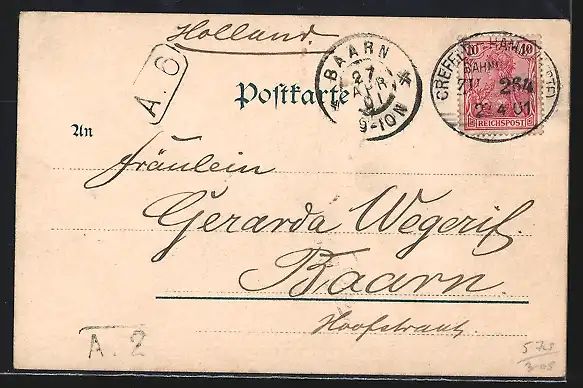 Holland.
A. 6
BAARN
27
APR
01
9-10N
10 10
CREFELD HAN
BAHN
ZU 264
2 4 01
REICHSPOST
Postkarte
An
Fräulein
Gerarda Wegerif.
Baarn.
Hoofstraat.
A. 2